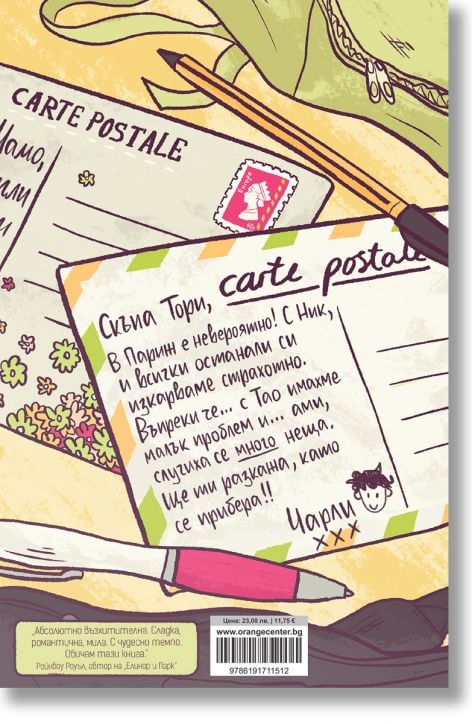 CARTE POSTALE
Мамо,
Europe
carte postale
Скъпа Тори,
В Париж е невероятно! С Ник,
и всички останали си
изкарваме страхотно.
Въпреки че... с Тао имахме
малък проблем и... ами,
случиха се много неща.
Ще ти разкажа, като
се прибера!!
Чарли
xxx
„Абсолютно възхитителна. Сладка,
романтична, мила. С чудесно темпо.
Обичам тази книга."
Рейнбоу Роуъл, автор на „Елинор и Парк"
Цена: 23,00 лв. | 11,75 €
www.orangecenter.bg
9786191711512